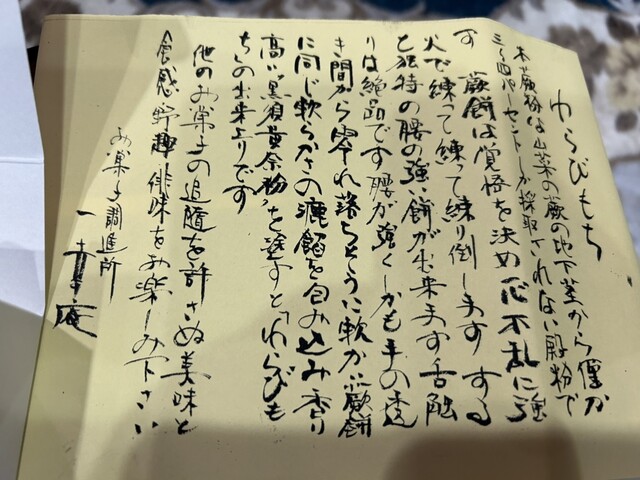 わらびもち
本蕨粉は山菜の蕨の地下茎から僅か
三～四パーセントしか採取されない澱粉で
す 蕨餅は覚悟を決め一心不乱に強
火で練って練って練り倒します する
と独特の腰の強い餅が出来ます 舌触
りは絶品です 腰が強くしかも手の透
き間から零れ落ちそうに軟かい蕨餅
に同じ軟らかさの漉餡を包み込み香り
高い黒須黄奈粉を塗すと「わらびも
ち」の出来上りです
他のお菓子の追随を許さぬ美味と
食感 野趣 俳味をお楽しみ下さい
お菓子調進所
一幸庵